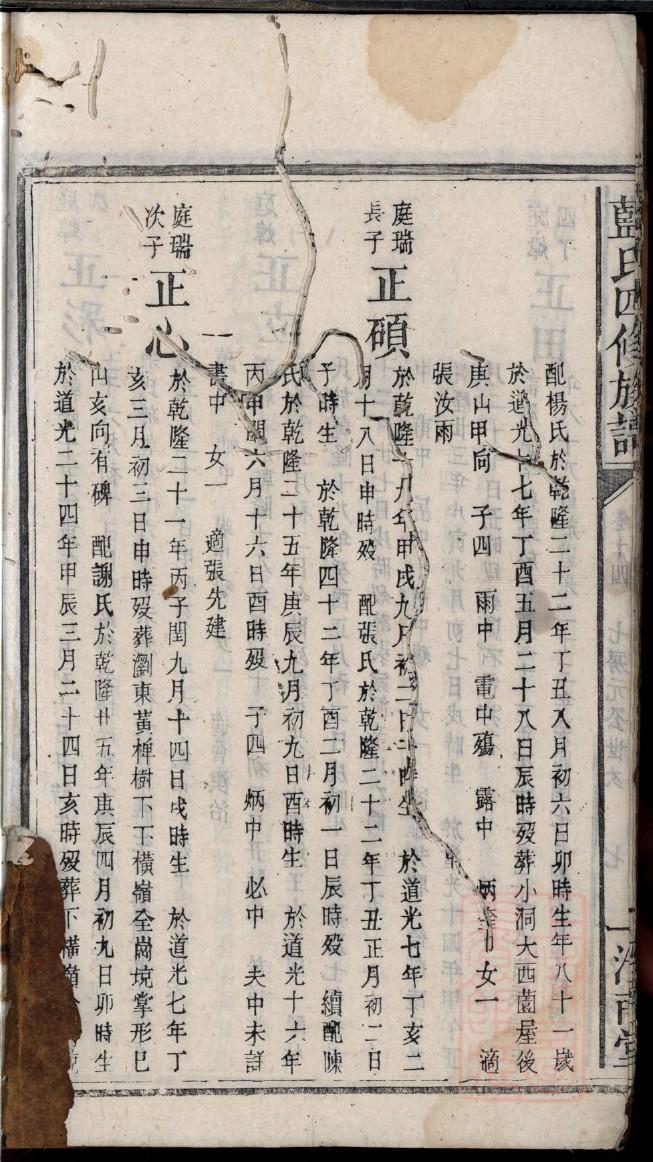 藍氏四修族譜
卷十四 七房元丞世次 七
配楊氏於乾隆二十二年丁丑八月初六日卯時生年八十一歲
於道光十七年丁酉五月二十八日辰時歿葬小洞大西薗屋後
庚山甲向 子四 雨中 電中殤 露中 炳 女一 適
張汝雨
庭瑞長子 正碩 於乾隆十九年甲戌九月初二日 時生 於道光七年丁亥二
月十八日申時歿 配張氏於乾隆二十二年丁丑正月初二日
子時生 於乾隆四十二年丁酉二月初一日辰時歿 續配陳
氏於乾隆二十五年庚辰九月初九日酉時生 於道光十六年
丙申閏六月十六日酉時歿 子四 炳中 必中 夫中未詳
書中 女一 適張先建
庭瑞次子 正心 於乾隆二十一年丙子閏九月十四日戌時生 於道光七年丁
亥三月初三日申時歿葬瀏東黃樿樹下下橫嶺全崗境掌形巳
山亥向有碑 配謝氏於乾隆廿五年庚辰四月初九日卯時生
於道光二十四年甲辰三月二十四日亥時歿葬下橫嶺